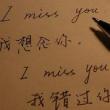 I miss you
我想念你.
I miss you
我错过你